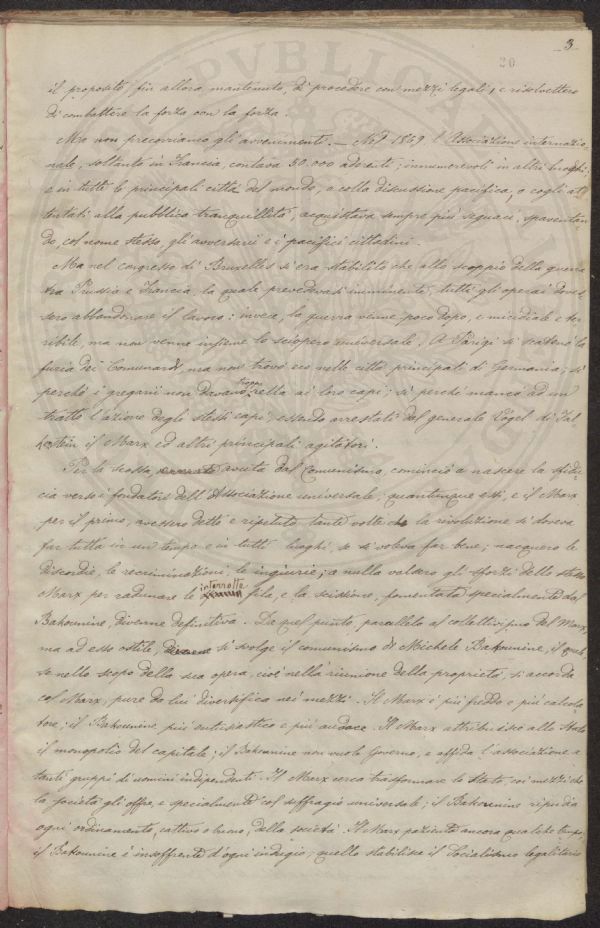 3
20
il proposito, fin allora mantenuto, di procedere con mezzi legali, e risolvettero
di combattere la forza con la forza.
Ma non precorriamo gli avvenimenti. — Nel 1869 l'Associazione internazio-
nale, soltanto in Francia, contava 50.000 aderenti; innumerevoli in altri luoghi;
e in tutte le principali città del mondo, o colla discussione pacifica, o cogli at-
tentati alla pubblica tranquillità, acquistava sempre più seguaci, spaventan-
do, col nome stesso, gli avversarii e i pacifici cittadini.
Ma nel congresso di Bruxelles si era stabilito che allo scoppio della guerra
tra Prussia e Francia, la quale prevedevasi imminente, tutti gli operai doves-
sero abbandonare il lavoro: invece, la guerra venne poco dopo, e micidiale e ter-
ribile, ma non venne insieme lo sciopero universale. A Parigi si scatenò la
furia dei Comunardi, ma non trovò eco nelle città principali di Germania; sì
perchè i gregarii non troppa retta ai loro capi; sì perchè mancò ad un
tratto l'azione degli stessi capi, essendo arrestati dal generale Vogel di Fal-
kestein il Marx ed altri principali agitatori.
Per la scossa avuta dal Comunismo, cominciò a nascere la sfidu-
cia verso i fondatori dell'Associazione universale; quantunque essi, e il Marx
per il primo, avessero detto e ripetuto tante volte che la rivoluzione si doveva
far tutta in un tempo e in tutti luoghi, se si voleva far bene; nacquero le
discordie, le recriminazioni, le ingiurie; a nulla valsero gli sforzi dello stesso
Marx per radunare le interrotte fila, e la scissione, fomentata specialmente dal
Bakounine, divenne definitiva. Da quel punto, parallelo al collettivismo del Marx,
ma ad esso ostile, si svolge il comunismo di Michele Bakounine, il quale
se nello scopo della sua opera, cioè nella riunione della proprietà, si accorda
col Marx, pure da lui diversifica nei mezzi. Il Marx è più freddo e più calcola-
tore; il Bakounine più entusiastico e più audace. Il Marx attribuisce allo Stato
il monopolio del capitale; il Bakounine non vuole Governo, e affida l'associazione a
tanti gruppi di uomini indipendenti. Il Marx cerca trasformare lo Stato, coi mezzi che
la società gli offre, e specialmente col suffragio universale; il Bakounine ripudia
ogni ordinamento, cattivo o buono, della società. Il Marx pazienta ancora qualche tempo,
il Bakounine è insofferente d'ogni indugio; quello stabilisce il Socialismo legalitario